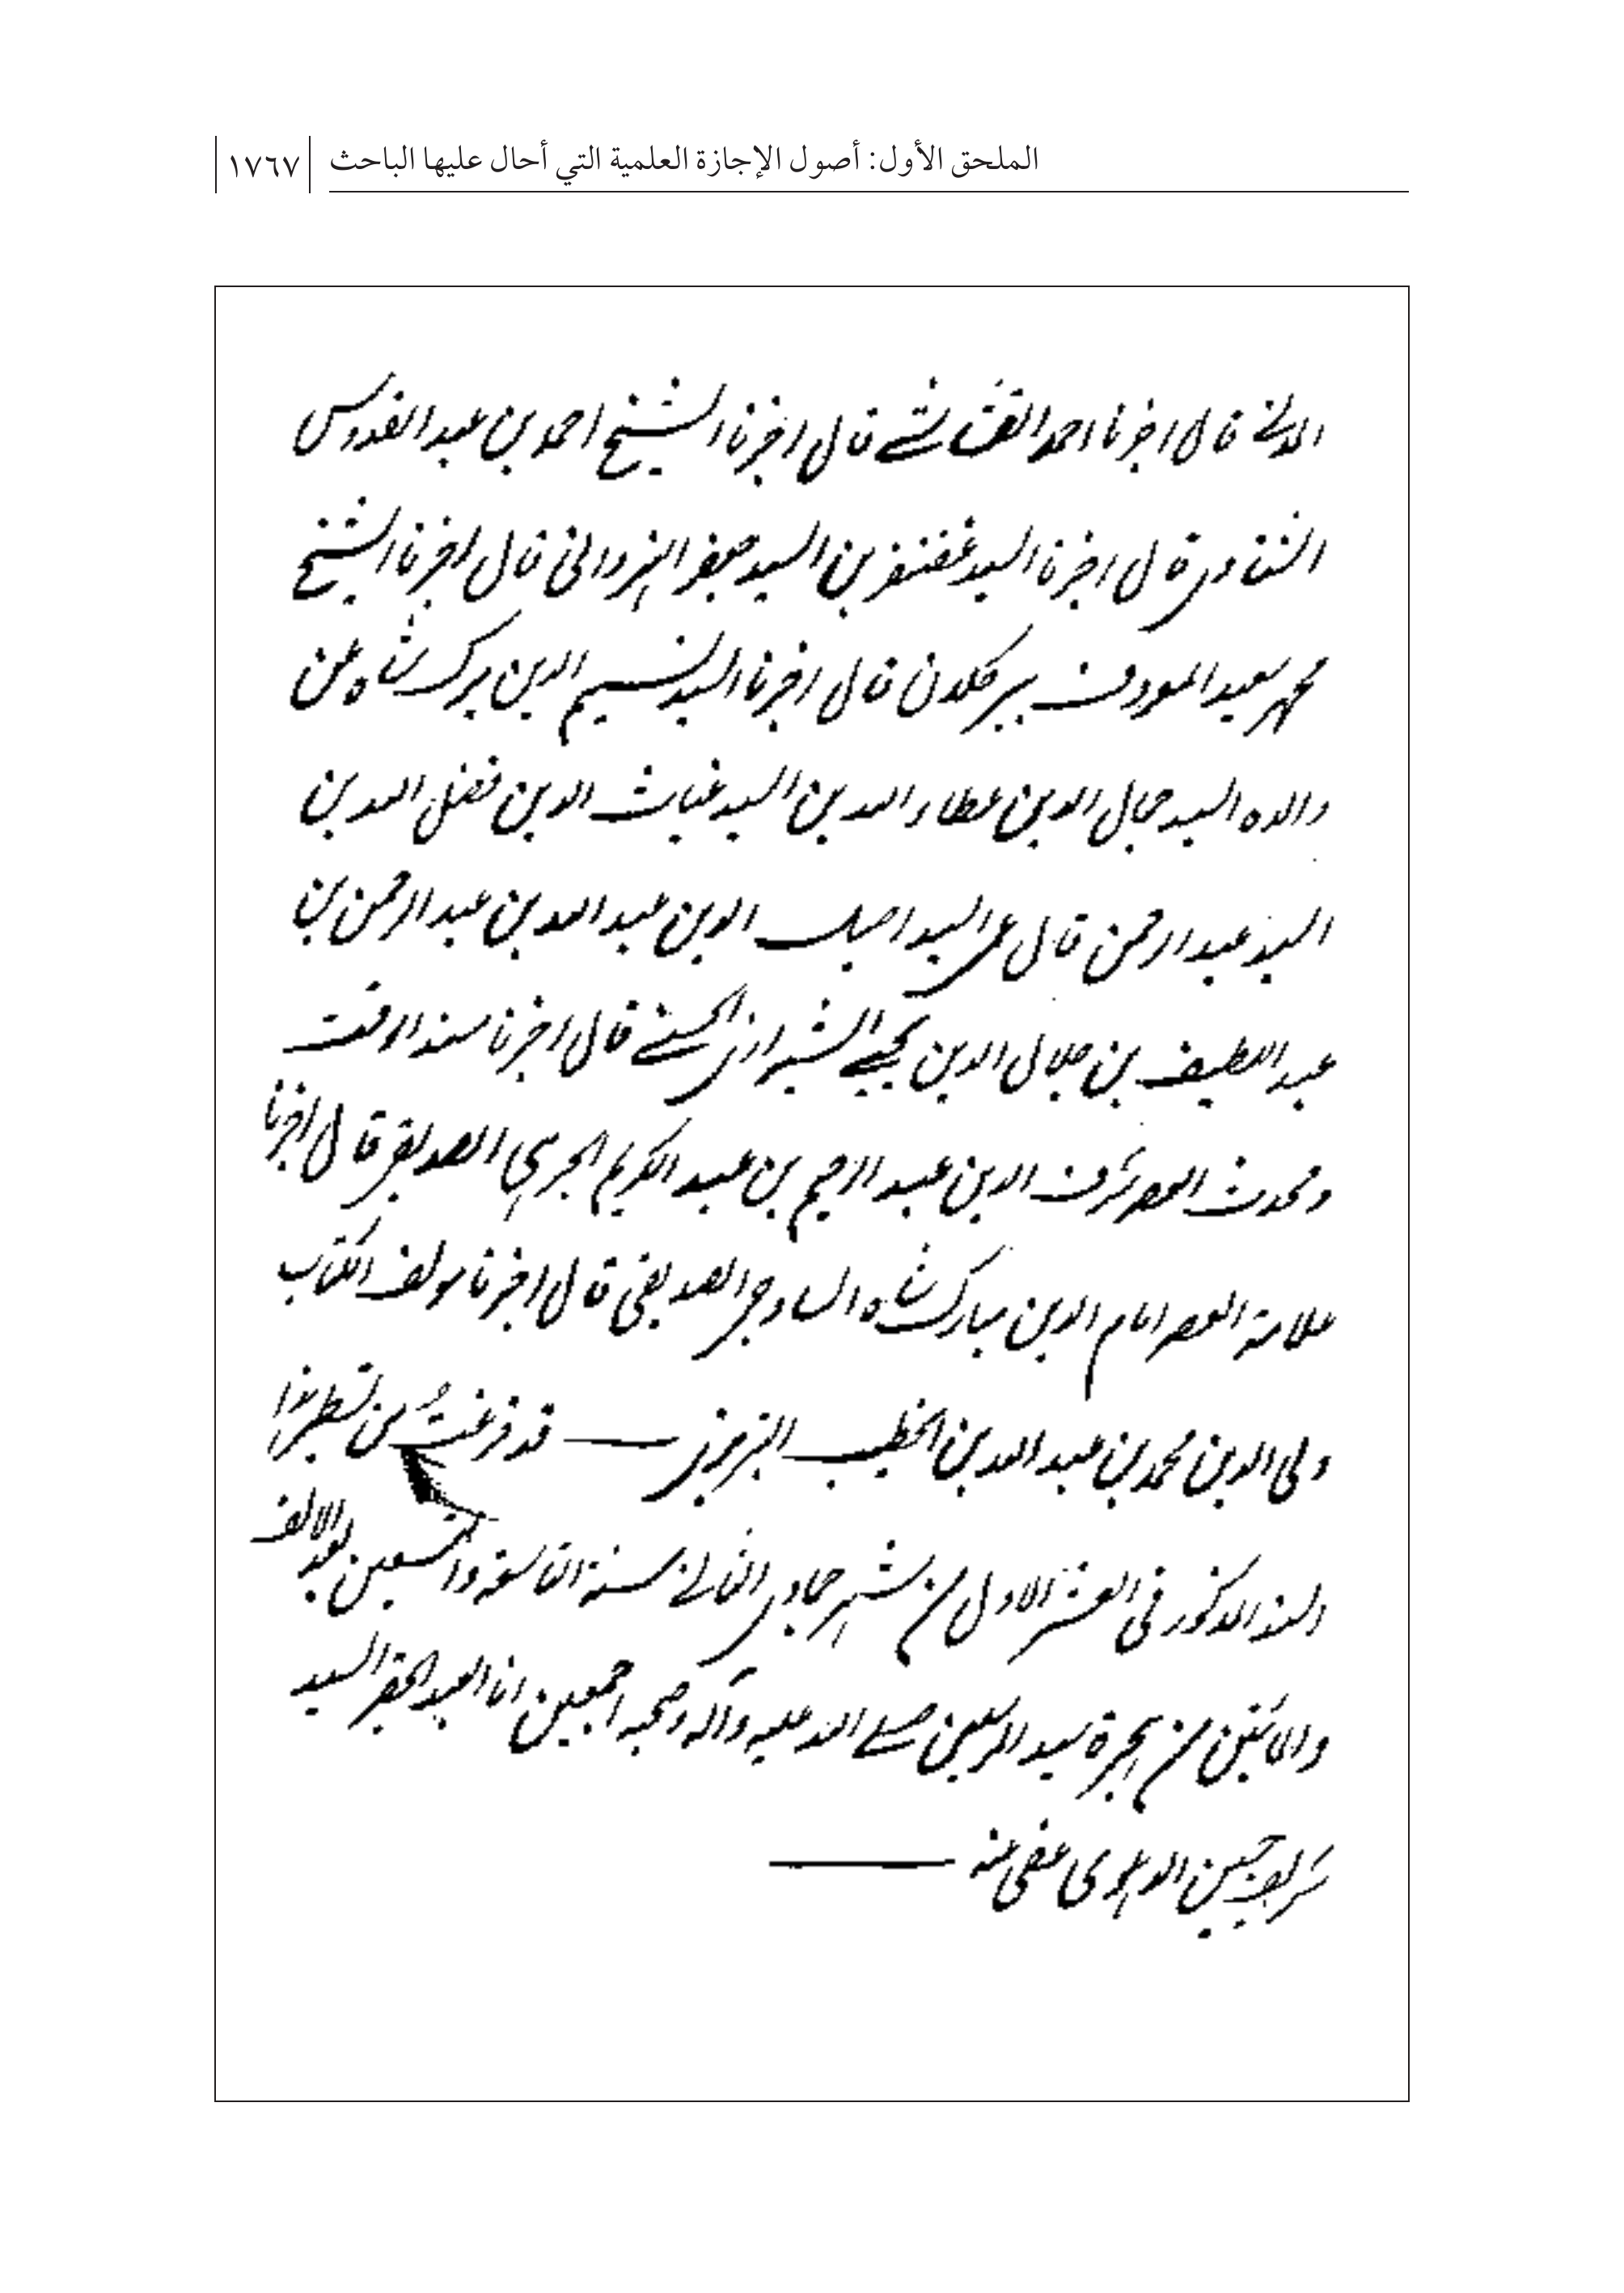 الملحق الأول: أصول الإجازة العلمية التي أحال عليها الباحث ١٧٦٧
المدني قال اخبرنا احمد القشاشي قال اخبرنا الشيخ احمد بن عبد القدوس
الشناوي قال اخبرنا السيد غضنفر بن السيد جعفر النهروالي قال اخبرنا الشيخ
محمد سعيد المعروف بمير كلان قال اخبرنا السيد نسيم الدين ميرك شاه عن
والده السيد جمال الدين عطاء الله بن السيد غياث الدين فضل الله بن
السيد عبد الرحمن قال عن السيد اصيل الدين عبد الله بن عبد الرحمن بن
عبد اللطيف بن جلال الدين يحيى الشيرازي الحسيني قال اخبرنا مسند الوقت
ومحدث العصر شرف الدين عبد الرحيم بن عبد الكريم الجرهي الصديقي قال اخبرنا
علامة العصر امام الدين مبارك شاه الساوجي الصديقي قال اخبرنا مولف الكتاب
ولي الدين محمد بن عبد الله بن الخطيب التبريزي قد فرغت من تسطير هذا
السند المذكور في العشر الاول من شهر جمادى الثاني سنة التاسعة والتسعين بعد الالف
والمائتين من هجرة سيد المرسلين صلى الله عليه وآله وصحبه اجمعين انا العبد الحقير السيد
شريف حسين الدهلوي عفى عنه